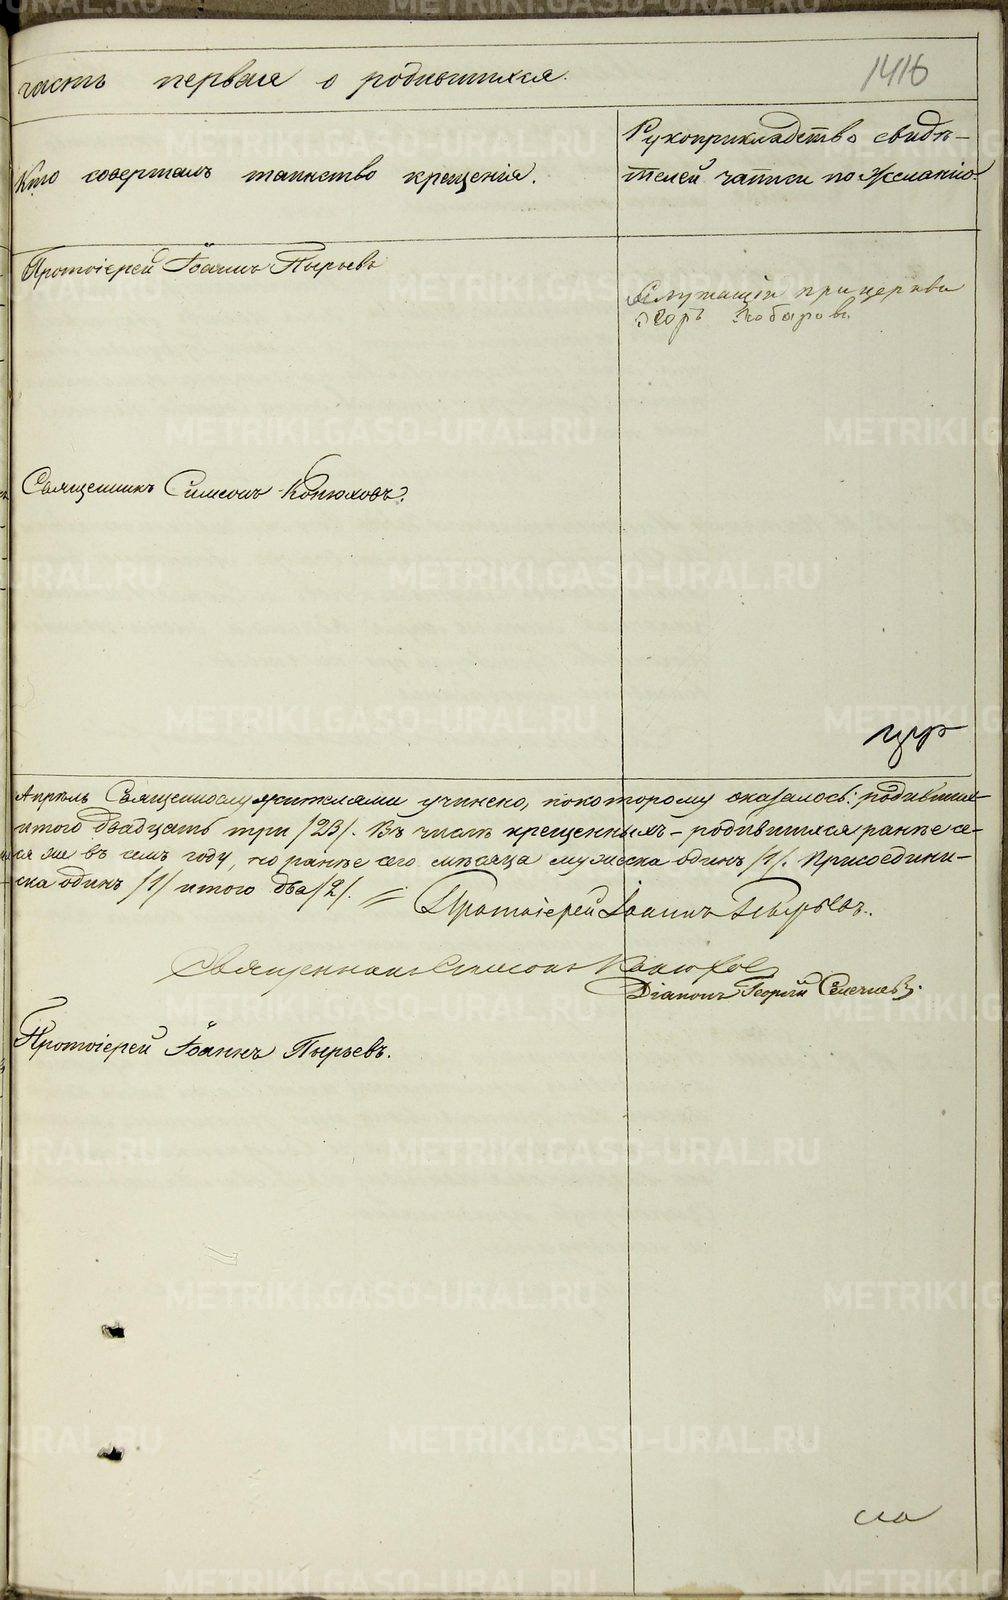 часть первая о родившихся.
1416
Кто совершалъ таинство крещенія.
Рукоприкладство свидѣ-
телей записи по желанію.
Протоіерей Іоаннъ Пырьевъ
Служащій при церкви
Священникъ Симеонъ Конюховъ.
Апрѣль Священнослужителями учинено, по которому оказалось: родившихся
итого двадцать три /23/. Въ числѣ крещенныхъ – родившихся ранѣе се-
же въ семъ году, но ранѣе сего мѣсяца мужеска одинъ /1/. Присоедини-
ска одинъ /1/ итого два /2/. Протоіерей Іоаннъ Пырьевъ.
Священникъ Симеонъ Конюховъ
Діаконъ Георгій
Протоіерей Іоаннъ Пырьевъ.
METRIKI.GASO-URAL.RU